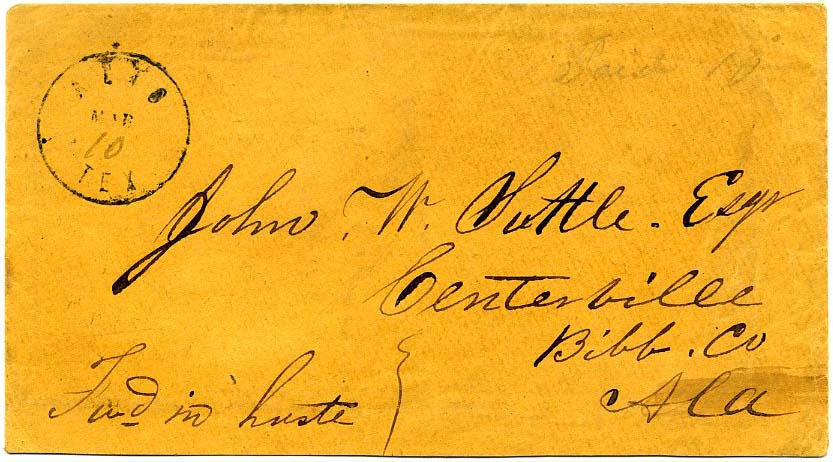 Paid 10
ALTO
MAR
10
TEX
John W. Suttle. Esqr
Centerville
Bibb. Co
Ala
Fwd in haste